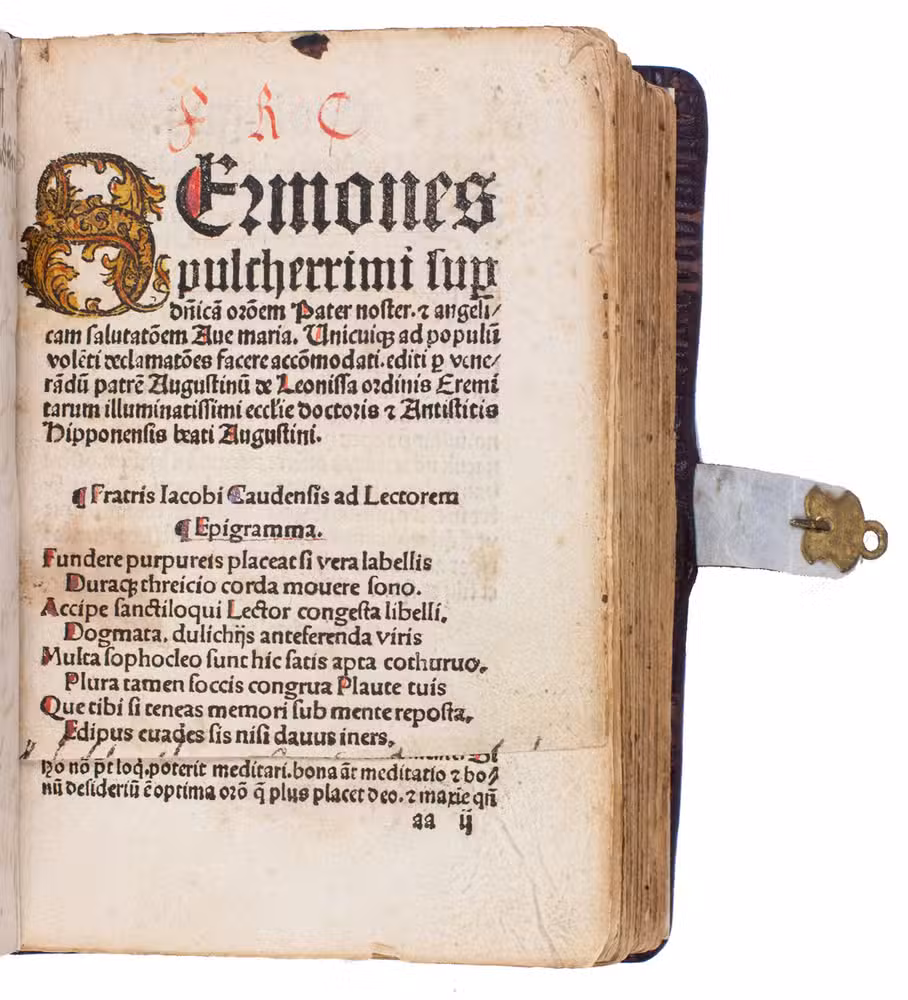 F R C
SErmones
pulcherrimi suꝑ
dñicã orõem Pater noster. ⁊ angeli/
cam salutatõem Aue maria. Unicuiqꝫ ad populũ
volẽti declamatões facere accõmodati. editi ꝑ vene/
rãdũ patrẽ Augustinũ de Leonissa ordinis Eremi
tarum illuminatissimi eccl'ie doctoris ⁊ Antistitis
Hipponensis beati Augustini.
¶ Fratris Iacobi Gaudensis ad Lectorem
¶ Epigramma.
Fundere purpureis placeat si vera labellis
Duraqꝫ threicio corda mouere sono.
Accipe sanctiloqui Lector congesta libelli,
Dogmata, dulichijs anteferenda viris
Multa sophocleo sunt hic satis apta cothuruo,
Plura tamen soccis congrua Plaute tuis
Que tibi si teneas memori sub mente reposta,
Edipus euades sis nisi dauus iners,
nõ põt loq̃. poterit meditari. bona aũt meditatio ⁊ bo/
nũ desideriũ ẽ optima orõ q̃ plus placet deo. ⁊ maxie qñ
aa ij